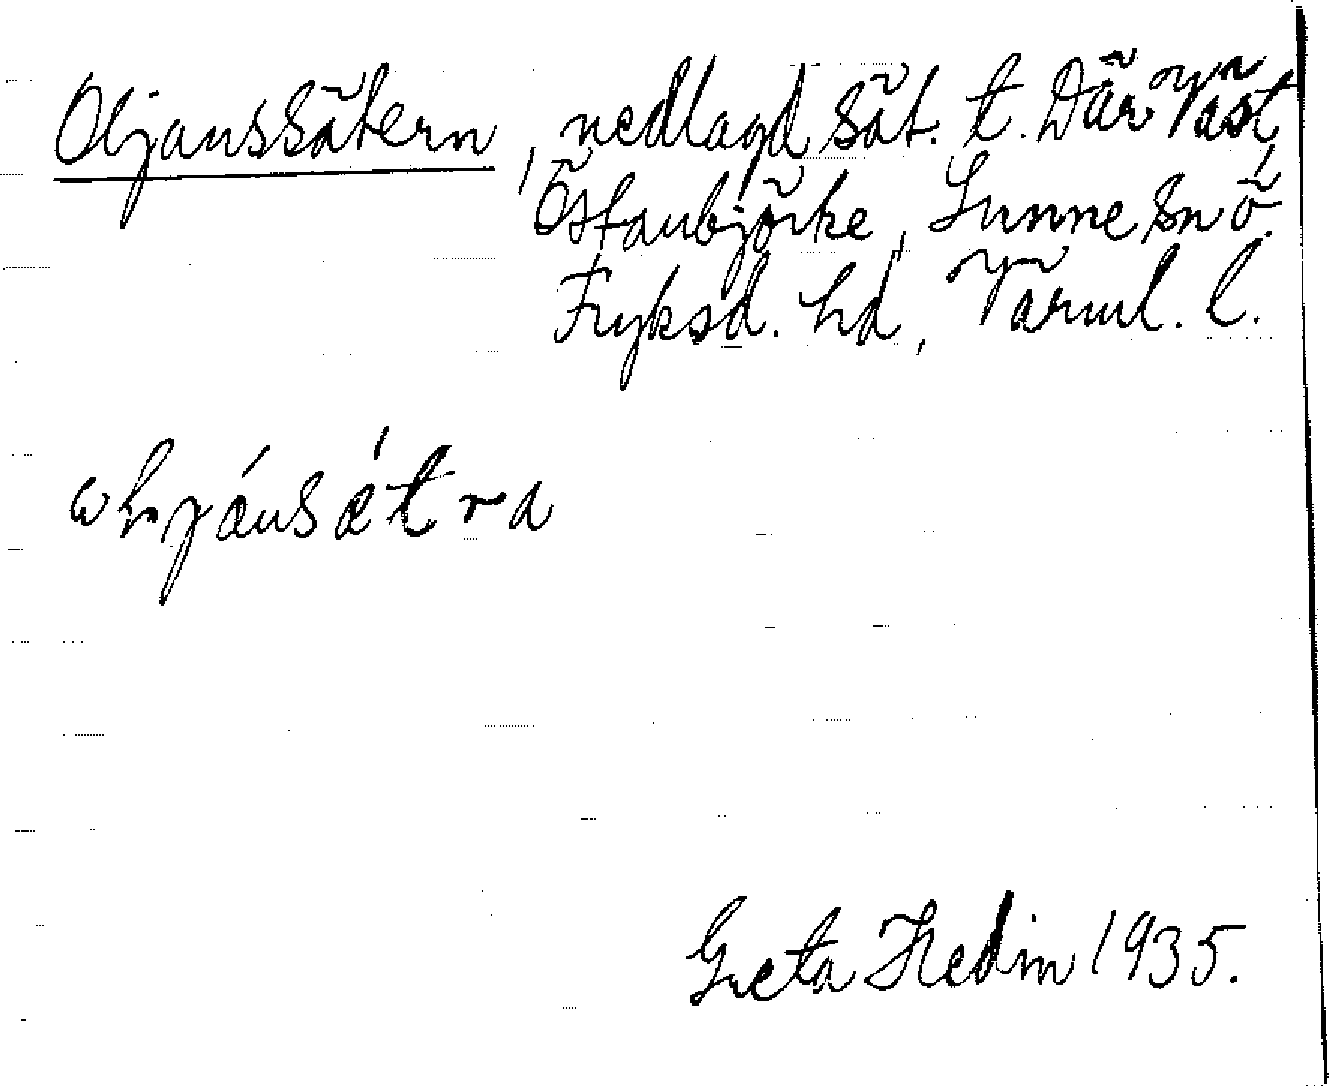 Oljanssätern, nedlagd sät. t. Där Väst,
Östanbjörke, Sunne sn ö.
Fryksd. hd, Värml. l.
Greta Hedin 1935.